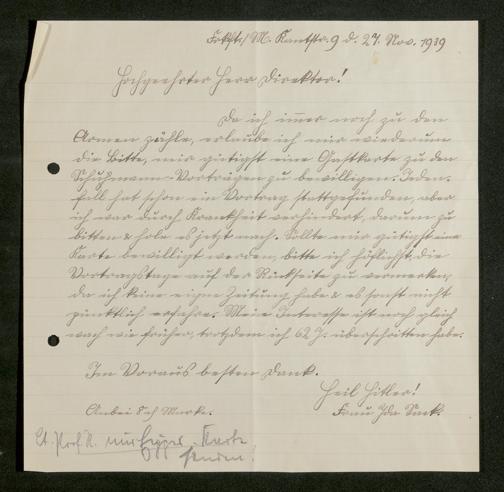 Frkft/M. Kantstr. 9 d. 27. Nov. 1939
Hochgeehrter Herr Direktor!
Da ich immer noch zu den
Armen zähle, erlaube ich mir wiederum
die Bitte, mir gütigst eine Gastkarte zu den
Schuhmann-Vorträgen zu bewilligen. Jeden-
fall hat schon ein Vortrag stattgefunden, aber
ich war durch Krankheit verhindert, darum zu
bitten & hole es jetzt nach. Sollte mir gütigst eine
Karte bewilligt werden, bitte ich höflichst, die
Vortragstage auf der Rückseite zu vermerken,
da ich keine eigne Zeitung habe & es sonst nicht
pünktlich erfahre. Mein Interesse ist noch gleich
wach wie früher, trotzdem ich 62 J. überschritten habe.
Im Voraus besten Dank.
Heil Hitler!
Anbei 8 ch Marke.
Frau Ida
Lt. Prof. R. Karte
senden!